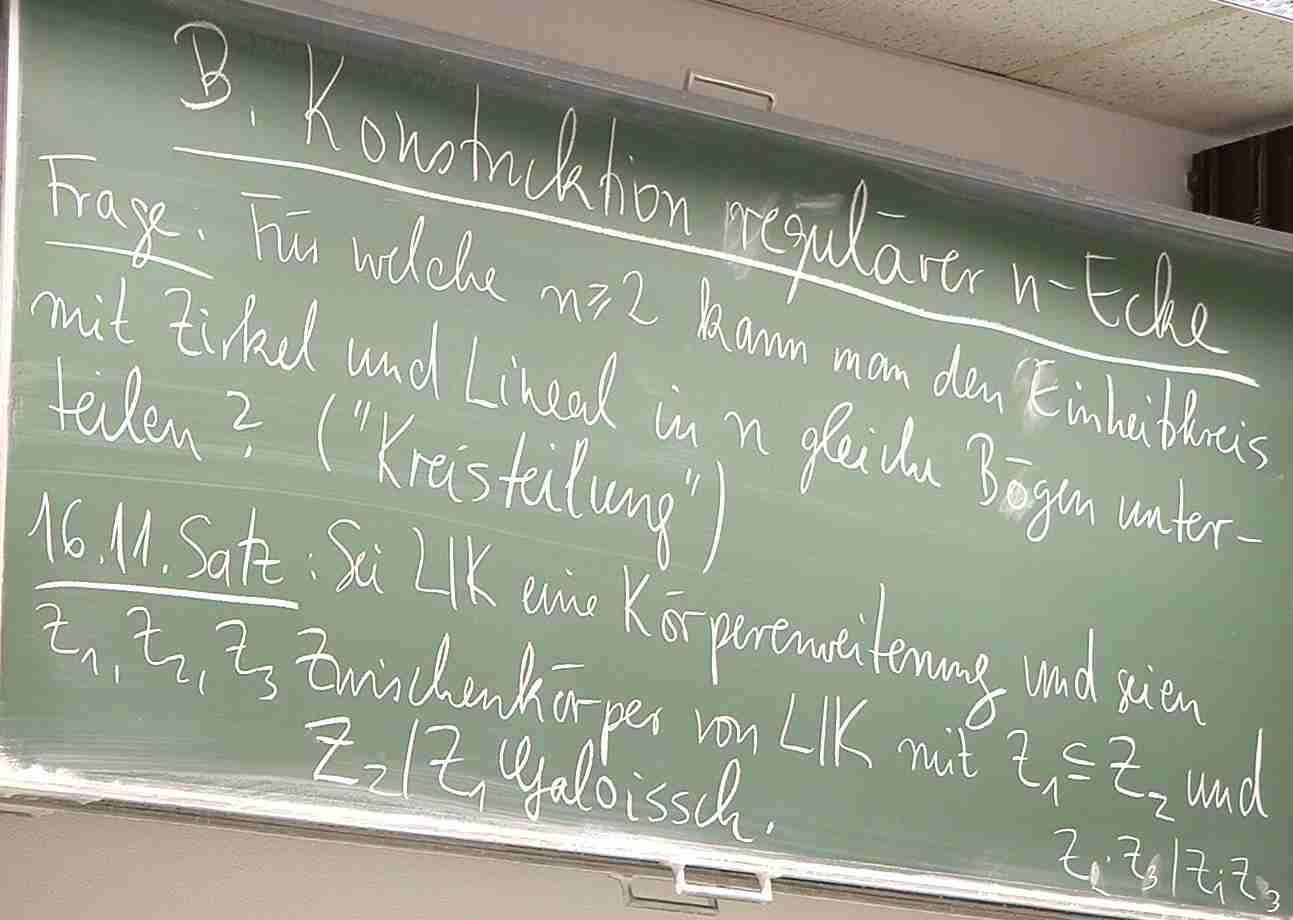 B. Konstruktion regulärer n-Ecke
Frage. Für welche n ≥ 2 kann man den Einheitskreis
mit Zirkel und Lineal in n gleiche Bögen unter-
teilen? ("Kreisteilung")
16.11. Satz: Sei L|K eine Körpererweiterung und seien
Z₁, Z₂, Z₃ Zwischenkörper von L|K mit Z₁ ⊆ Z₂ und
Z₂|Z₁ Galoissch.
Z₂·Z₃|Z₁Z₃